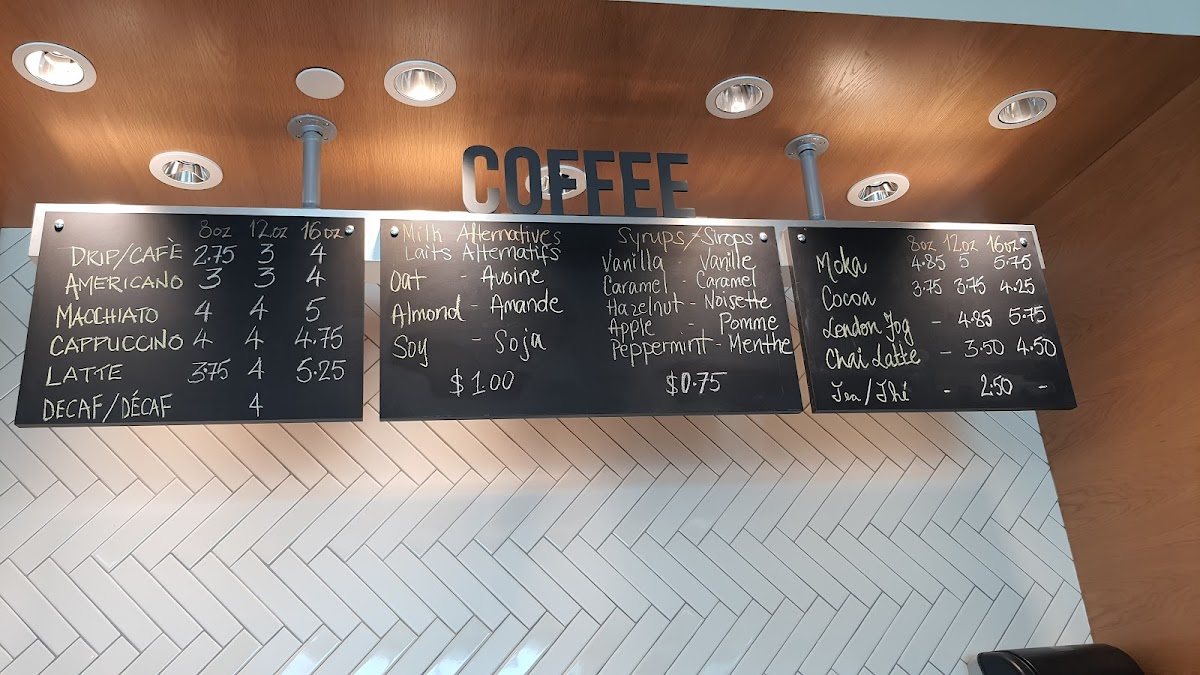 COFFEE
8oz 12oz 16oz
DRIP/CAFÈ 2.75 3 4
AMERICANO 3 3 4
MACCHIATO 4 4 5
CAPPUCCINO 4 4 4.75
LATTE 3.75 4 5.25
DECAF/DÉCAF 4
Milk Alternatives
Laits Alternatifs
Oat - Avoine
Almond - Amande
Soy - Soja
$1.00
Syrups/Sirops
Vanilla - Vanille
Caramel - Caramel
Hazelnut - Noisette
Apple - Pomme
Peppermint - Menthe
$0.75
8oz 12oz 16oz
Moka 4.85 5 5.75
Cocoa 3.75 3.75 4.25
London Fog - 4.85 5.75
Chai Latte - 3.50 4.50
Tea/Thé - 2.50 -